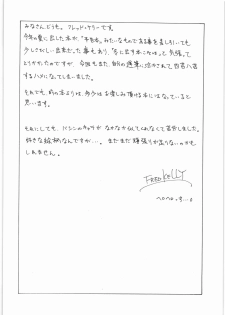 みなさんどうも。フレッド・ケリーです。
今年の夏に出した本が、"予告本"みたいなものである事を差し引いても
少しさびしい出来だった事もあり、「冬に出す本こそは」と気張って
とりかかったのですが、今回もまた、自分の遅筆に泣かされて四苦八苦
するハメになってしまいました。
それでも、前の本よりは、多少は楽しみ頂ける本にはなっていると
思います。
それにしても、のキャラがなかなか似てくれなくて苦労しました。
好きな絵柄なんですが…。まだまだ頑張りが足りないのかも
しれません。
FRED KELLY